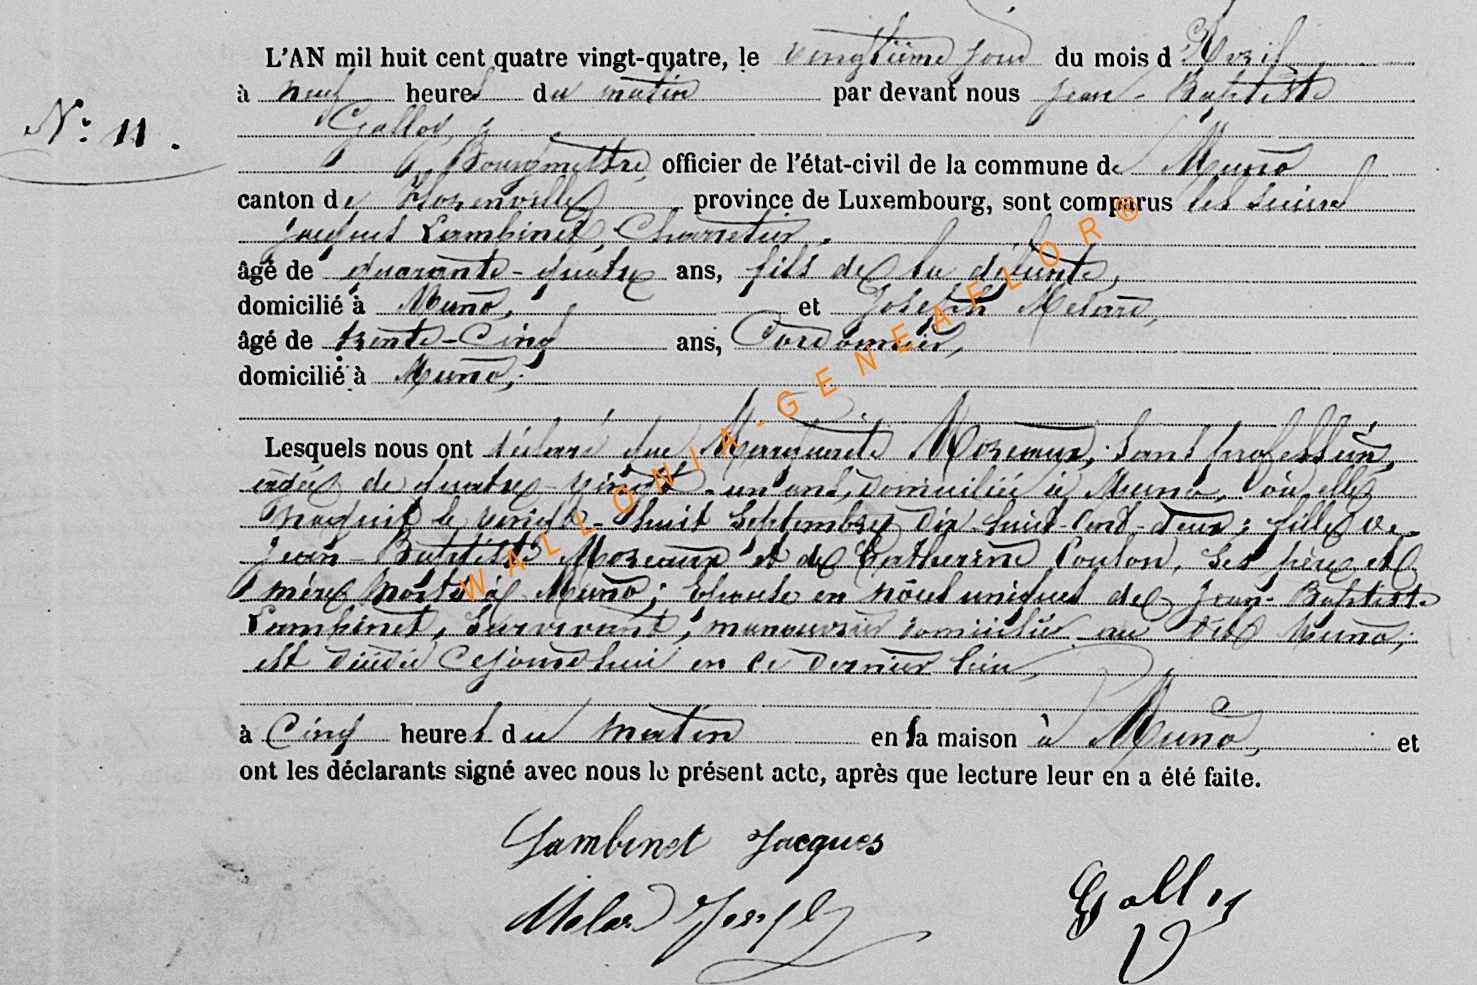 L'AN mil huit cent quatre vingt-quatre, le vingtième jour du mois d'Avril
à neuf heures du matin par devant nous Jean-Baptiste
N° 11.
Gallois,
Bourgmestre, officier de l'état-civil de la commune de Muno
canton de Florenville province de Luxembourg, sont comparus les sieurs
Jacques Lambinet, Charretier,
âgé de quarante-quatre ans, fils de la défunte,
domicilié à Muno, et Joseph
âgé de trente-cinq ans, Cordonnier,
domicilié à Muno,
Lesquels nous ont déclaré que Marguerite Moreaux, sans profession,
âgée de quatre-vingt-un ans, domiciliée à Muno, où elle
naquit le vingt-huit Septembre dix-huit-cent-deux; fille de
Jean-Baptiste Moreaux et de Catherine Coulon, ses père et
mère morts à Muno; Epouse en noces uniques de Jean-Baptiste
Lambinet, survivant, manouvrier domicilié au dit Muno,
est décédée cejourd'hui en ce dernier lieu,
à Cinq heures du matin en sa maison à Muno, et
ont les déclarants signé avec nous le présent acte, après que lecture leur en a été faite.
Lambinet Jacques
Joseph
WALLONIA-GENEAFLOR®